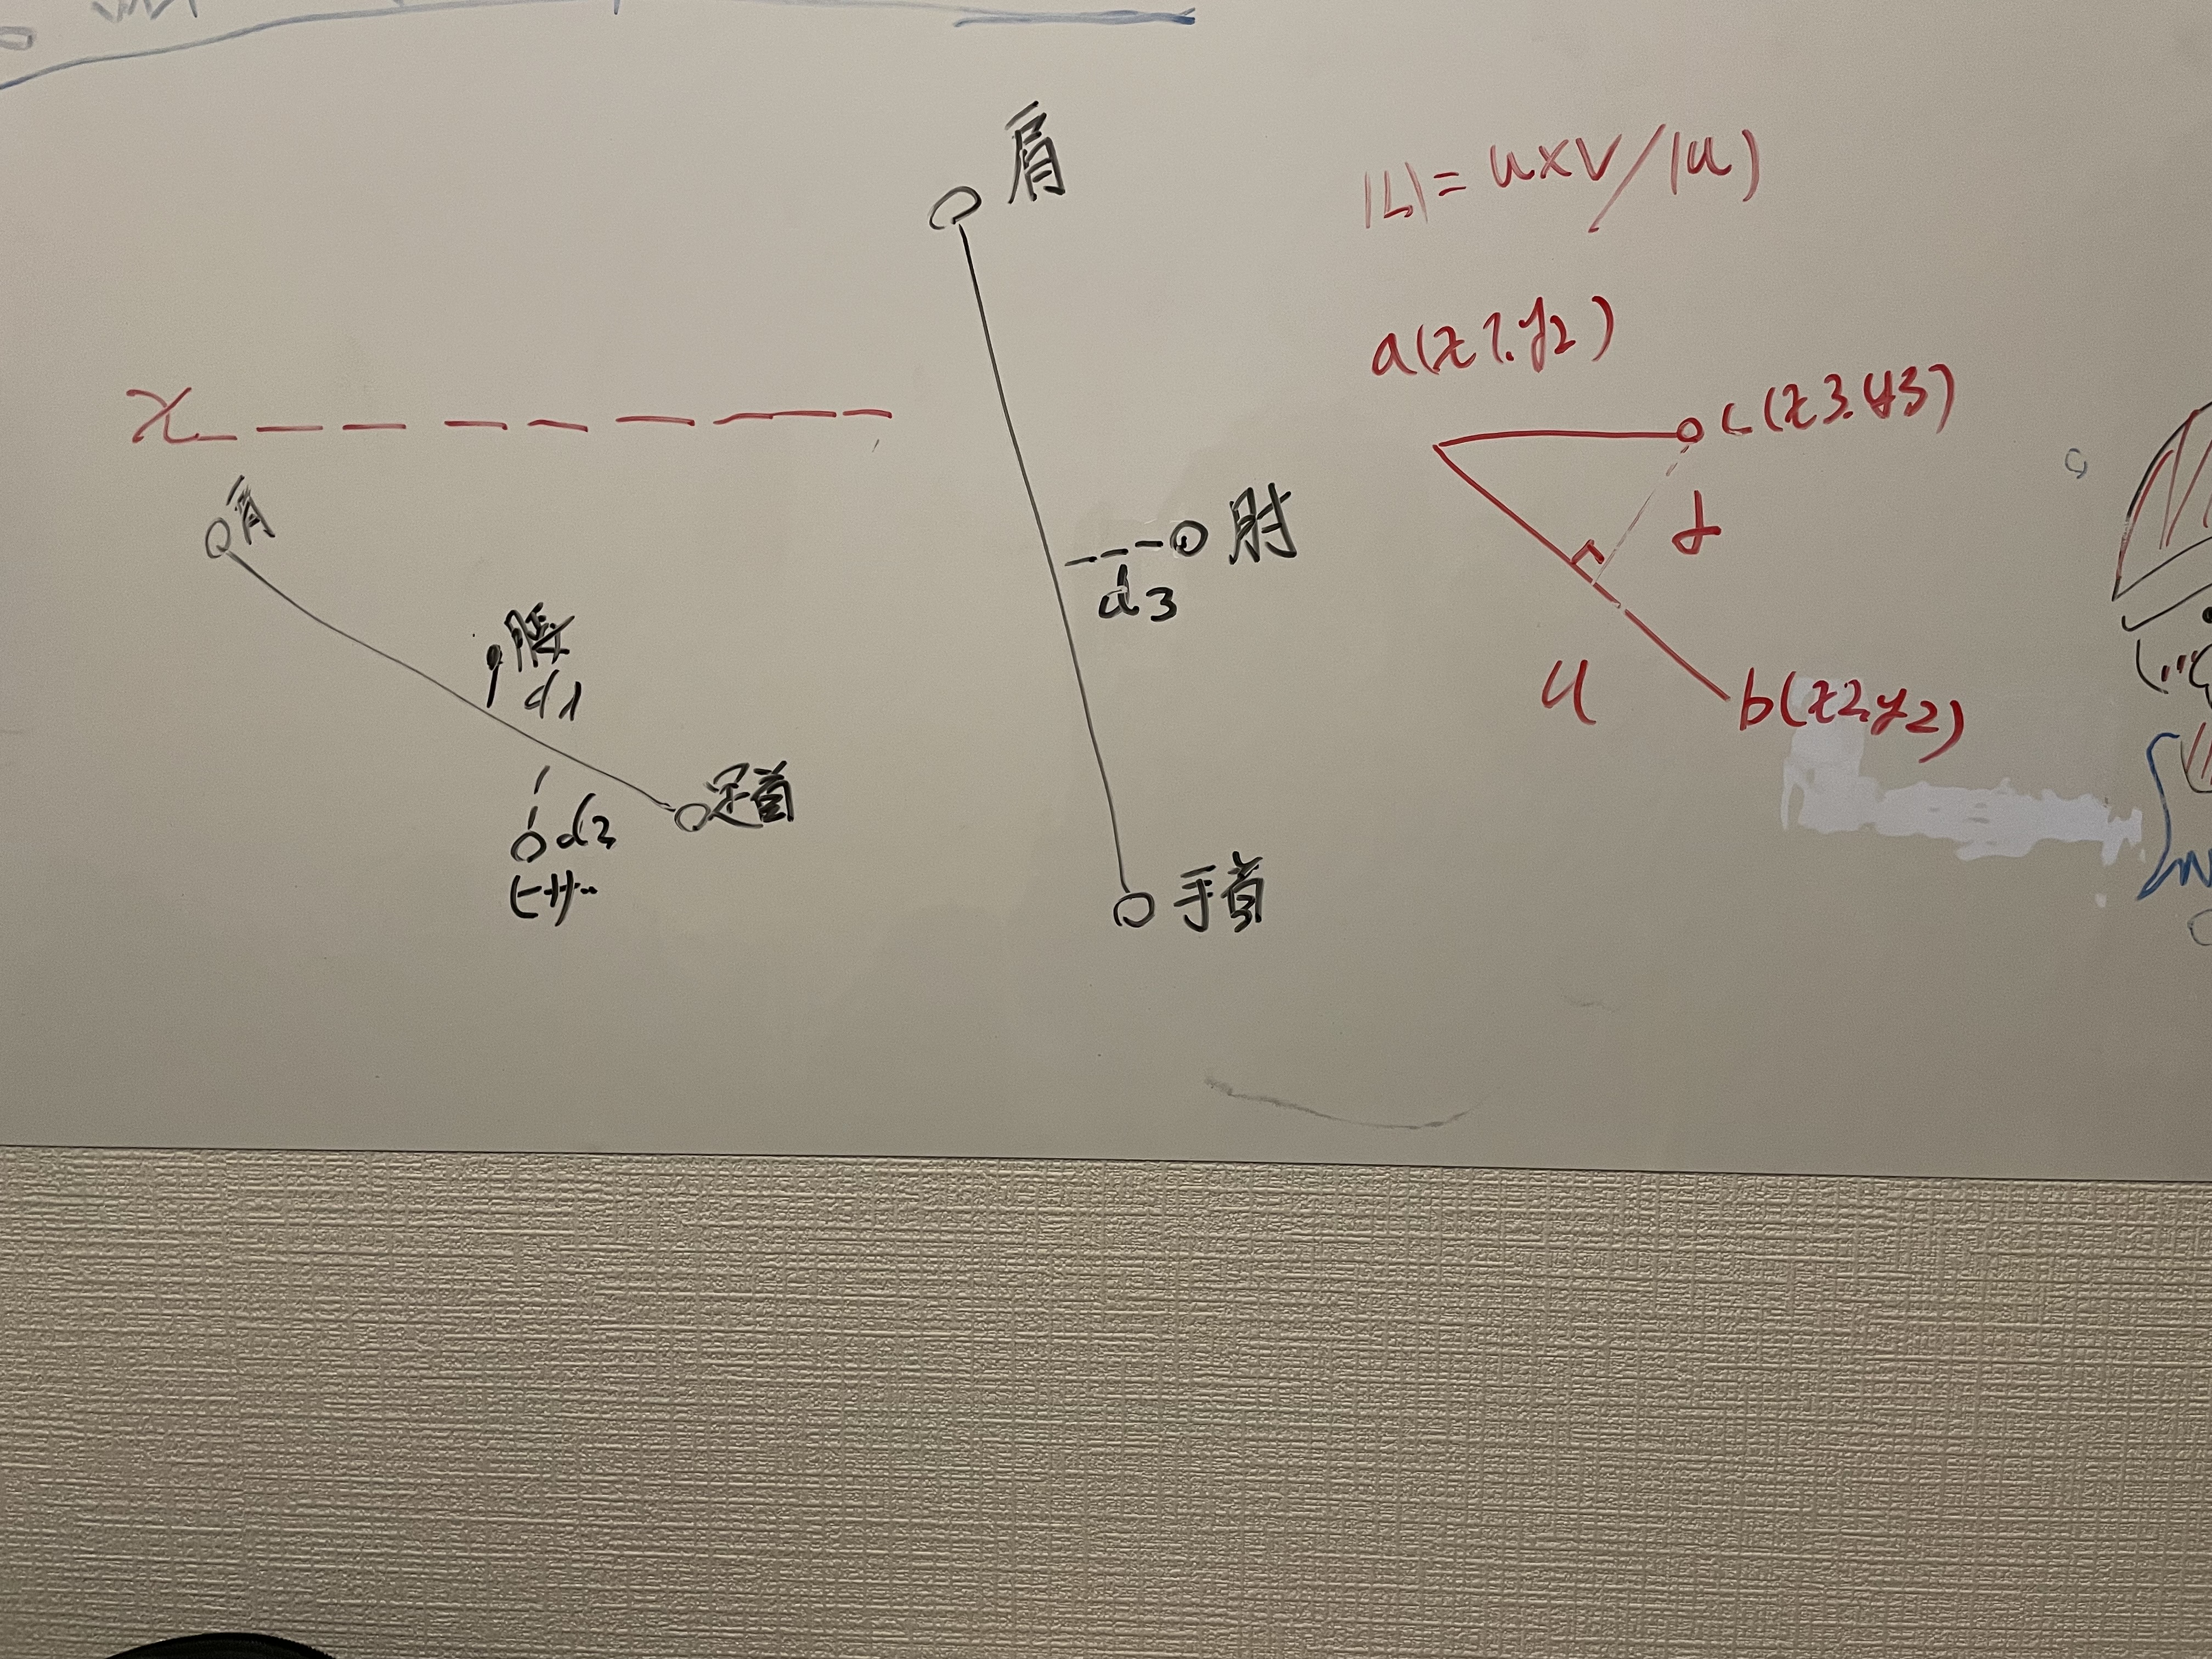 肩
|L|= u×v/|u|
a(x1.y2)
x
c(x3.y3)
肩
肘
d
d3
腰
d1
u
b(x2.y2)
足首
d2
ヒザ
手首